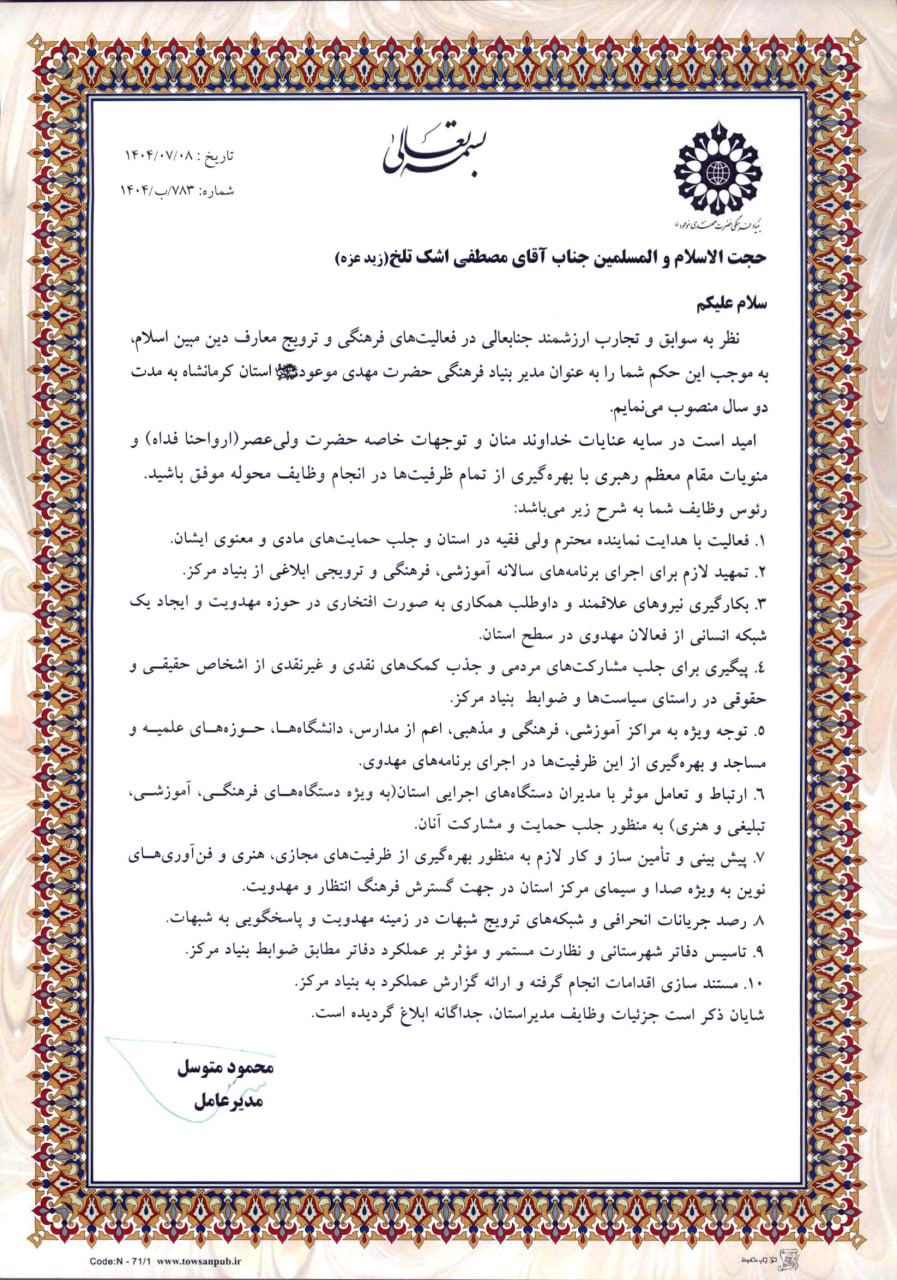 بسمه تعالی
تاریخ : ۱۴۰۴/۰۷/۰۸
شماره: ۷۸۳/ب/۱۴۰۴
بنیاد فرهنگی حضرت مهدی موعود
حجت الاسلام و المسلمین جناب آقای مصطفی اشک تلخ(زید عزه)
سلام علیکم
نظر به سوابق و تجارب ارزشمند جنابعالی در فعالیت‌های فرهنگی و ترویج معارف دین مبین اسلام،
به موجب این حکم شما را به عنوان مدیر بنیاد فرهنگی حضرت مهدی موعود استان کرمانشاه به مدت
دو سال منصوب می‌نمایم.
امید است در سایه عنایات خداوند منان و توجهات خاصه حضرت ولی‌عصر(ارواحنا فداه) و
منویات مقام معظم رهبری با بهره‌گیری از تمام ظرفیت‌ها در انجام وظایف محوله موفق باشید.
رئوس وظایف شما به شرح زیر می‌باشد:
۱. فعالیت با هدایت نماینده محترم ولی فقیه در استان و جلب حمایت‌های مادی و معنوی ایشان.
۲. تمهید لازم برای اجرای برنامه‌های سالانه آموزشی، فرهنگی و ترویجی ابلاغی از بنیاد مرکز.
۳. بکارگیری نیروهای علاقمند و داوطلب همکاری به صورت افتخاری در حوزه مهدویت و ایجاد یک
شبکه انسانی از فعالان مهدوی در سطح استان.
۴. پیگیری برای جلب مشارکت‌های مردمی و جذب کمک‌های نقدی و غیرنقدی از اشخاص حقیقی و
حقوقی در راستای سیاست‌ها و ضوابط بنیاد مرکز.
۵. توجه ویژه به مراکز آموزشی، فرهنگی و مذهبی، اعم از مدارس، دانشگاه‌ها، حوزه‌های علمیه و
مساجد و بهره‌گیری از این ظرفیت‌ها در اجرای برنامه‌های مهدوی.
۶. ارتباط و تعامل موثر با مدیران دستگاه‌های اجرایی استان(به ویژه دستگاه‌های فرهنگی، آموزشی،
تبلیغی و هنری) به منظور جلب حمایت و مشارکت آنان.
۷. پیش بینی و تأمین ساز و کار لازم به منظور بهره‌گیری از ظرفیت‌های مجازی، هنری و فن‌آوری‌های
نوین به ویژه صدا و سیمای مرکز استان در جهت گسترش فرهنگ انتظار و مهدویت.
۸. رصد جریانات انحرافی و شبکه‌های ترویج شبهات در زمینه مهدویت و پاسخگویی به شبهات.
۹. تاسیس دفاتر شهرستانی و نظارت مستمر و مؤثر بر عملکرد دفاتر مطابق ضوابط بنیاد مرکز.
۱۰. مستند سازی اقدامات انجام گرفته و ارائه گزارش عملکرد به بنیاد مرکز.
شایان ذکر است جزئیات وظایف مدیراستان، جداگانه ابلاغ گردیده است.
محمود متوسل
مدیرعامل
Code:N - 71/1 www.towsanpub.ir